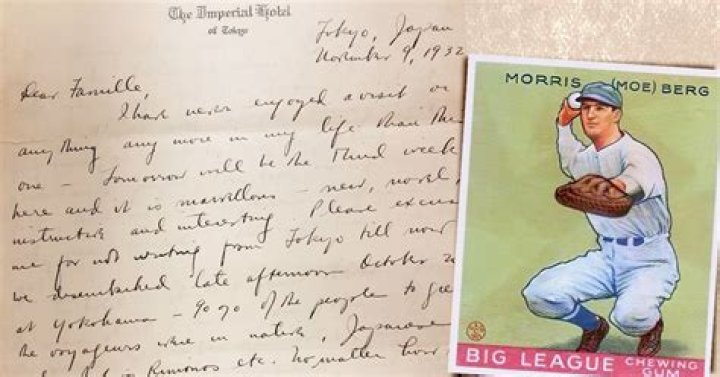 The Imperial Hotel
of Tokyo
Tokyo, Japan
November 9, 1932
Dear Famille,
I have never enjoyed a visit or
anything any more in my life than this
one - Tomorrow will be the third week
here and it is marvellous - new, novel,
instructive and interesting Please excuse
me for not writing from Tokyo till now
we disembarked late afternoon October 20
at Yokohama - 90% of the people to gre
the voyageurs were in native, Japanese
Kimonos etc. no matter how
MORRIS (MOE) BERG
BIG LEAGUE CHEWING GUM